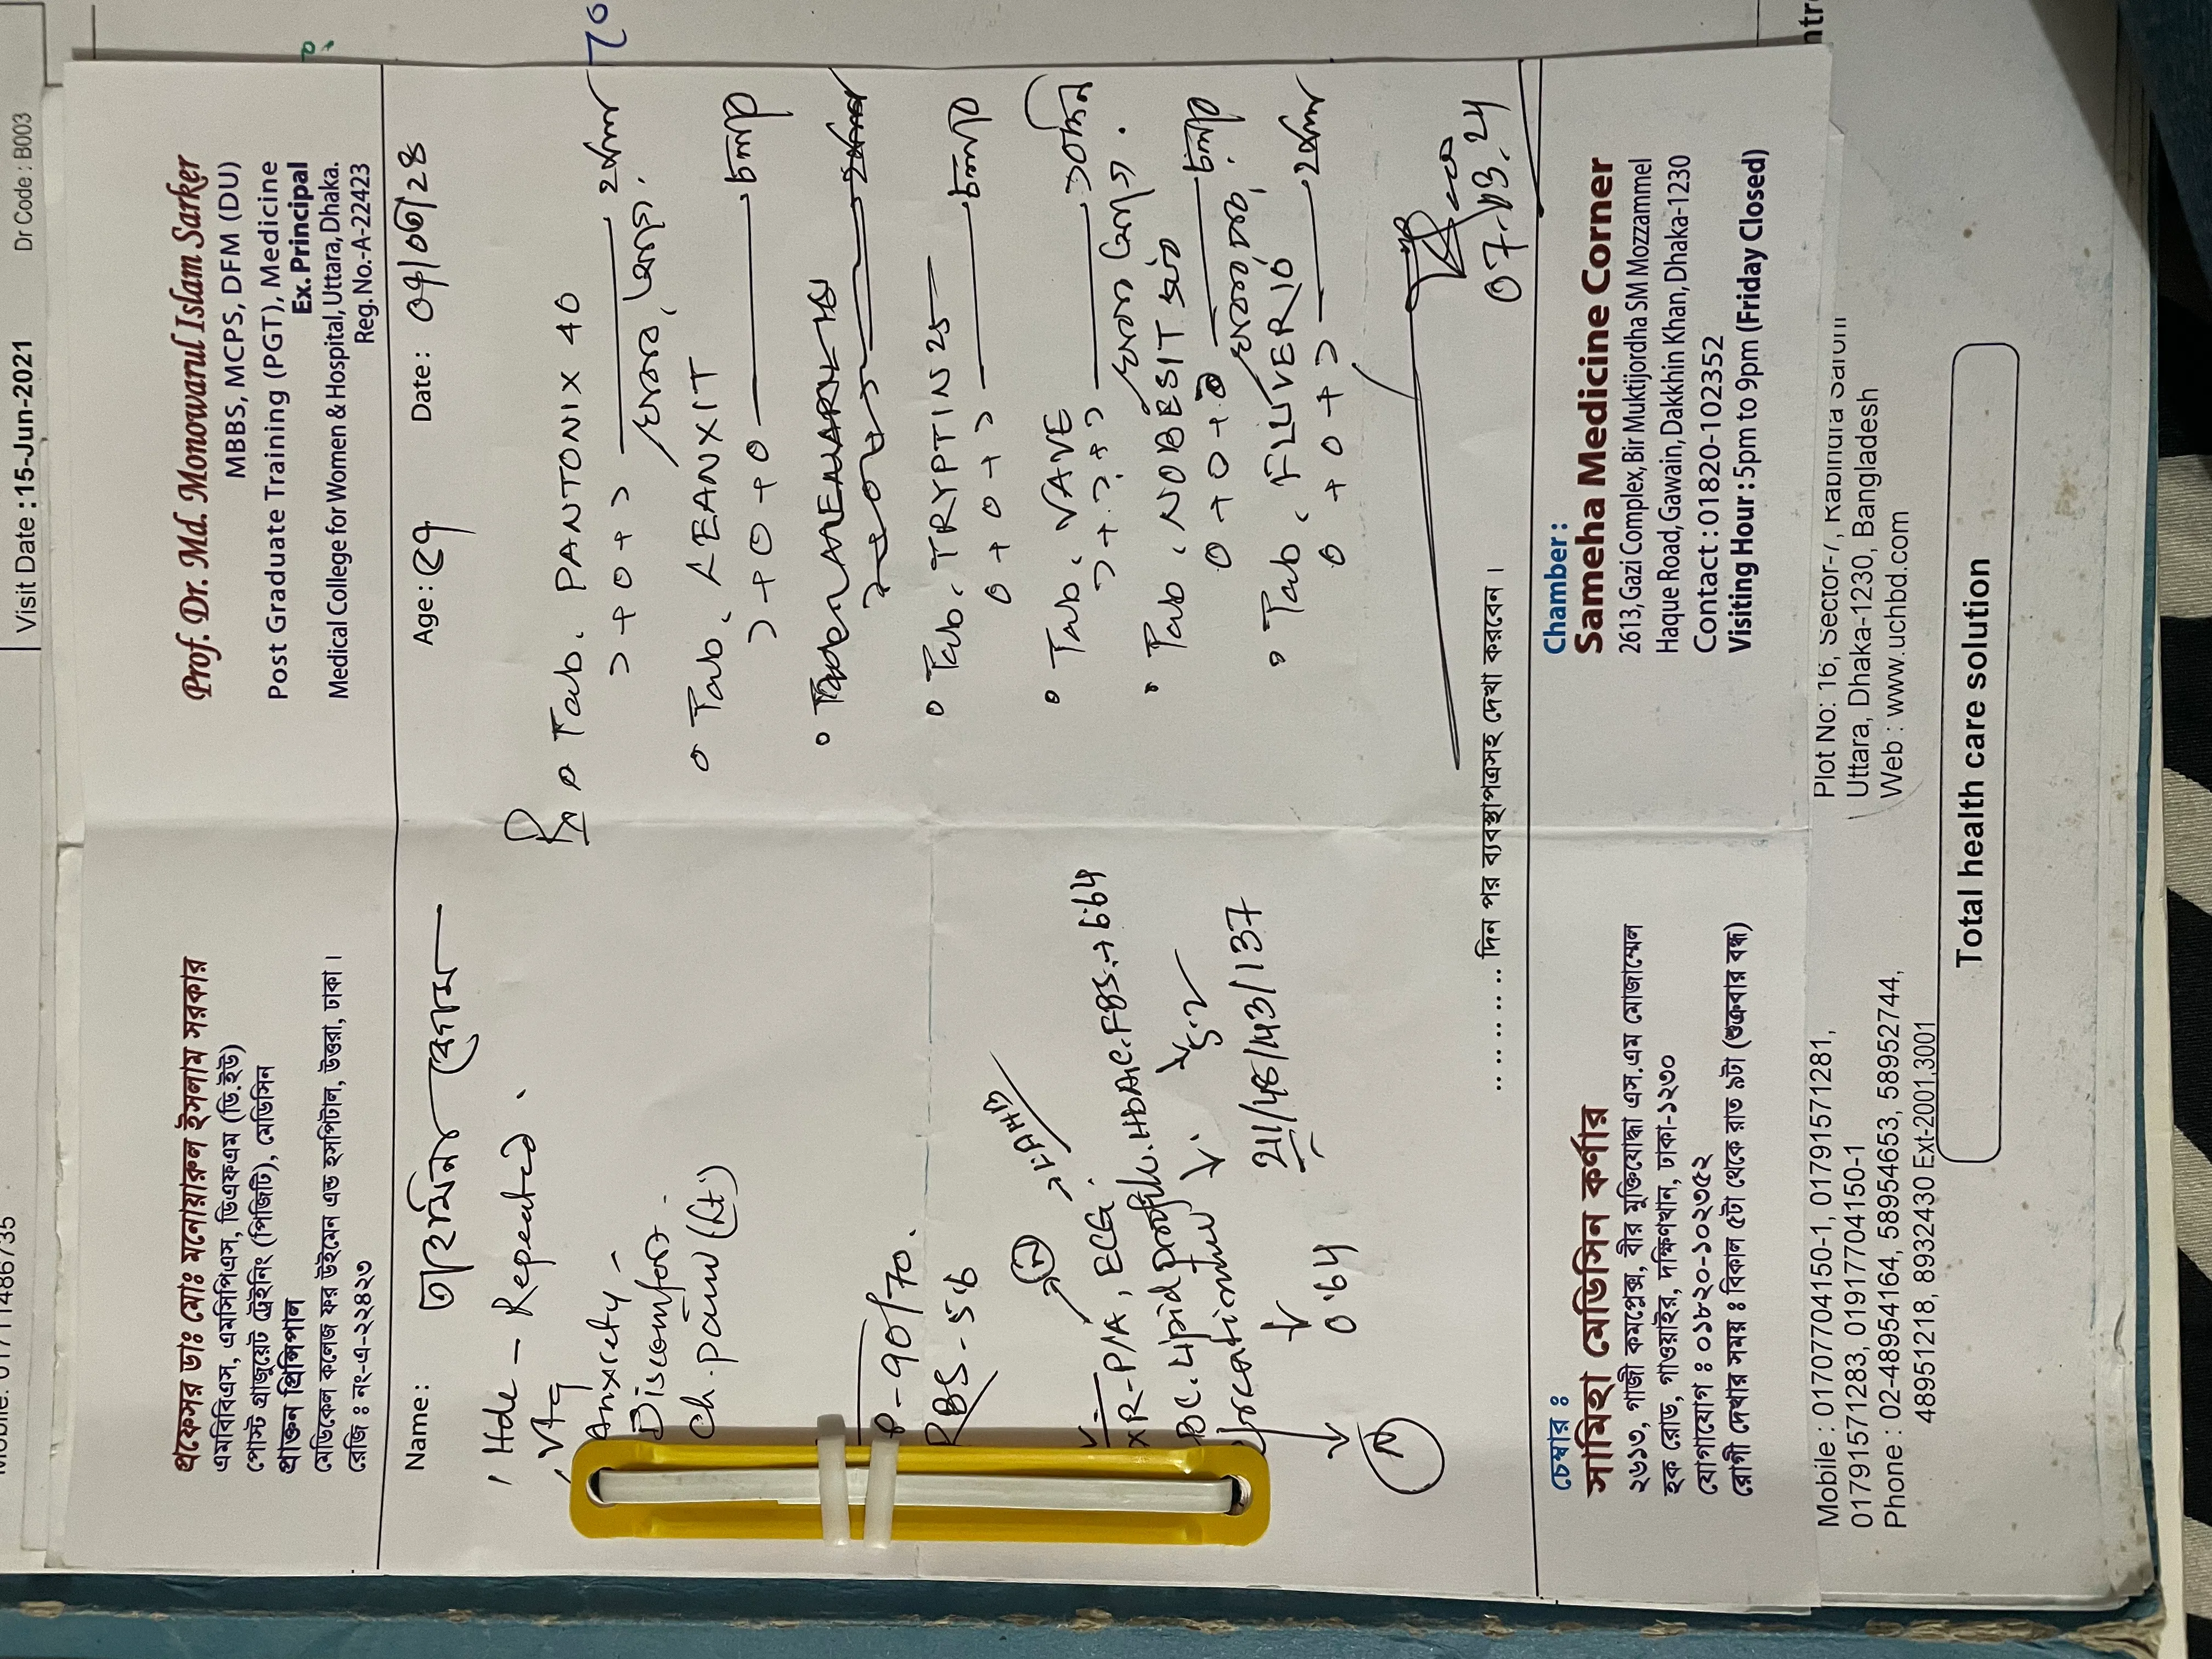 Visit Date : 15-Jun-2021
Dr Code : B003
প্রফেসর ডাঃ মোঃ মনোয়ারুল ইসলাম সরকার
এমবিবিএস, এমসিপিএস, ডিএফএম (ডি.ইউ)
পোস্ট গ্রাজুয়েট ট্রেইনিং (পিজিটি), মেডিসিন
প্রাক্তন প্রিন্সিপাল
মেডিকেল কলেজ ফর উইমেন এন্ড হসপিটাল, উত্তরা, ঢাকা।
রেজি ঃ নং-এ-২২৪২৩
Prof. Dr. Md. Monowarul Islam Sarker
MBBS, MCPS, DFM (DU)
Post Graduate Training (PGT), Medicine
Ex. Principal
Medical College for Women & Hospital, Uttara, Dhaka.
Reg. No.-A-22423
Name: বেগম Age: ৫৭ Date: ০৭/০৩/২৪
Hde - Repeated.
Anxiety -
Discomfort
Ch. pain (Lt)
P-90/70.
RBS - 5.6
XR-P/A, ECG.
BC. Lipid profile. HbA1c. FBS → 6.64
5.2
211/48/143/137
0.64
N
Rx
Tab. PANTONIX 40
১+০+১ ২মাস
Tab. LEANXIT
১+০+০ চলবে
Tab. TRYPTIN 25
০+০+১ চলবে
Tab. VAVE
১+১+১ ১০দিন
Tab. NOBESIT
চলবে
Tab. FLUVER 10
০+০+১ ২মাস
07.03.24
.. .. .. .. .. .. দিন পর ব্যবস্থাপত্রসহ দেখা করবেন।
চেম্বার ঃ
সামিহা মেডিসিন কর্ণার
২৬১৩, গাজী কমপ্লেক্স, বীর মুক্তিযোদ্ধা এস.এম মোজাম্মেল
হক রোড, গাওয়াইর, দক্ষিণখান, ঢাকা-১২৩০
যোগাযোগ ঃ ০১৮২০-১০২৩৫২
রোগী দেখার সময় ঃ বিকাল ৫টা থেকে রাত ৯টা (শুক্রবার বন্ধ)
Chamber :
Sameha Medicine Corner
2613, Gazi Complex, Bir Muktijordha SM Mozzammel
Haque Road, Gawain, Dakkhin Khan, Dhaka-1230
Contact : 01820-102352
Visiting Hour : 5pm to 9pm (Friday Closed)
Mobile : 01707704150-1, 01791571281,
01791571283, 01917704150-1
Phone : 02-48954164, 58954653, 58952744,
48951218, 8932430 Ext-2001,3001
Plot No: 16, Sector-7,
Uttara, Dhaka-1230, Bangladesh
Web : www.uchbd.com
Total health care solution